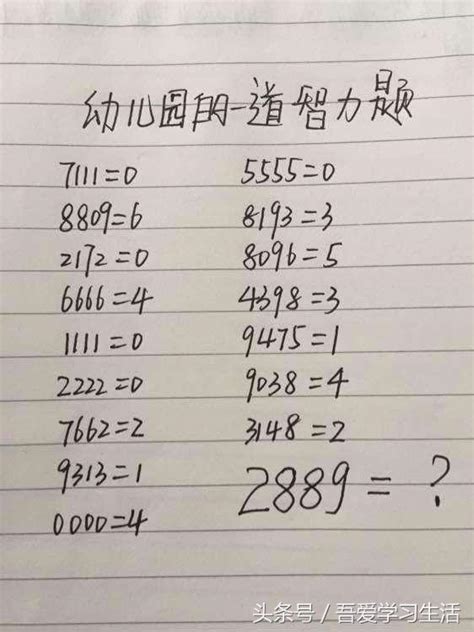 幼儿园的一道智力题
7111=0 5555=0
8809=6 8193=3
2172=0 8096=5
6666=4 4398=3
1111=0 9475=1
2222=0 9038=4
7662=2 3148=2
9313=1 2889=?
0000=4
头条号/吾爱学习生活